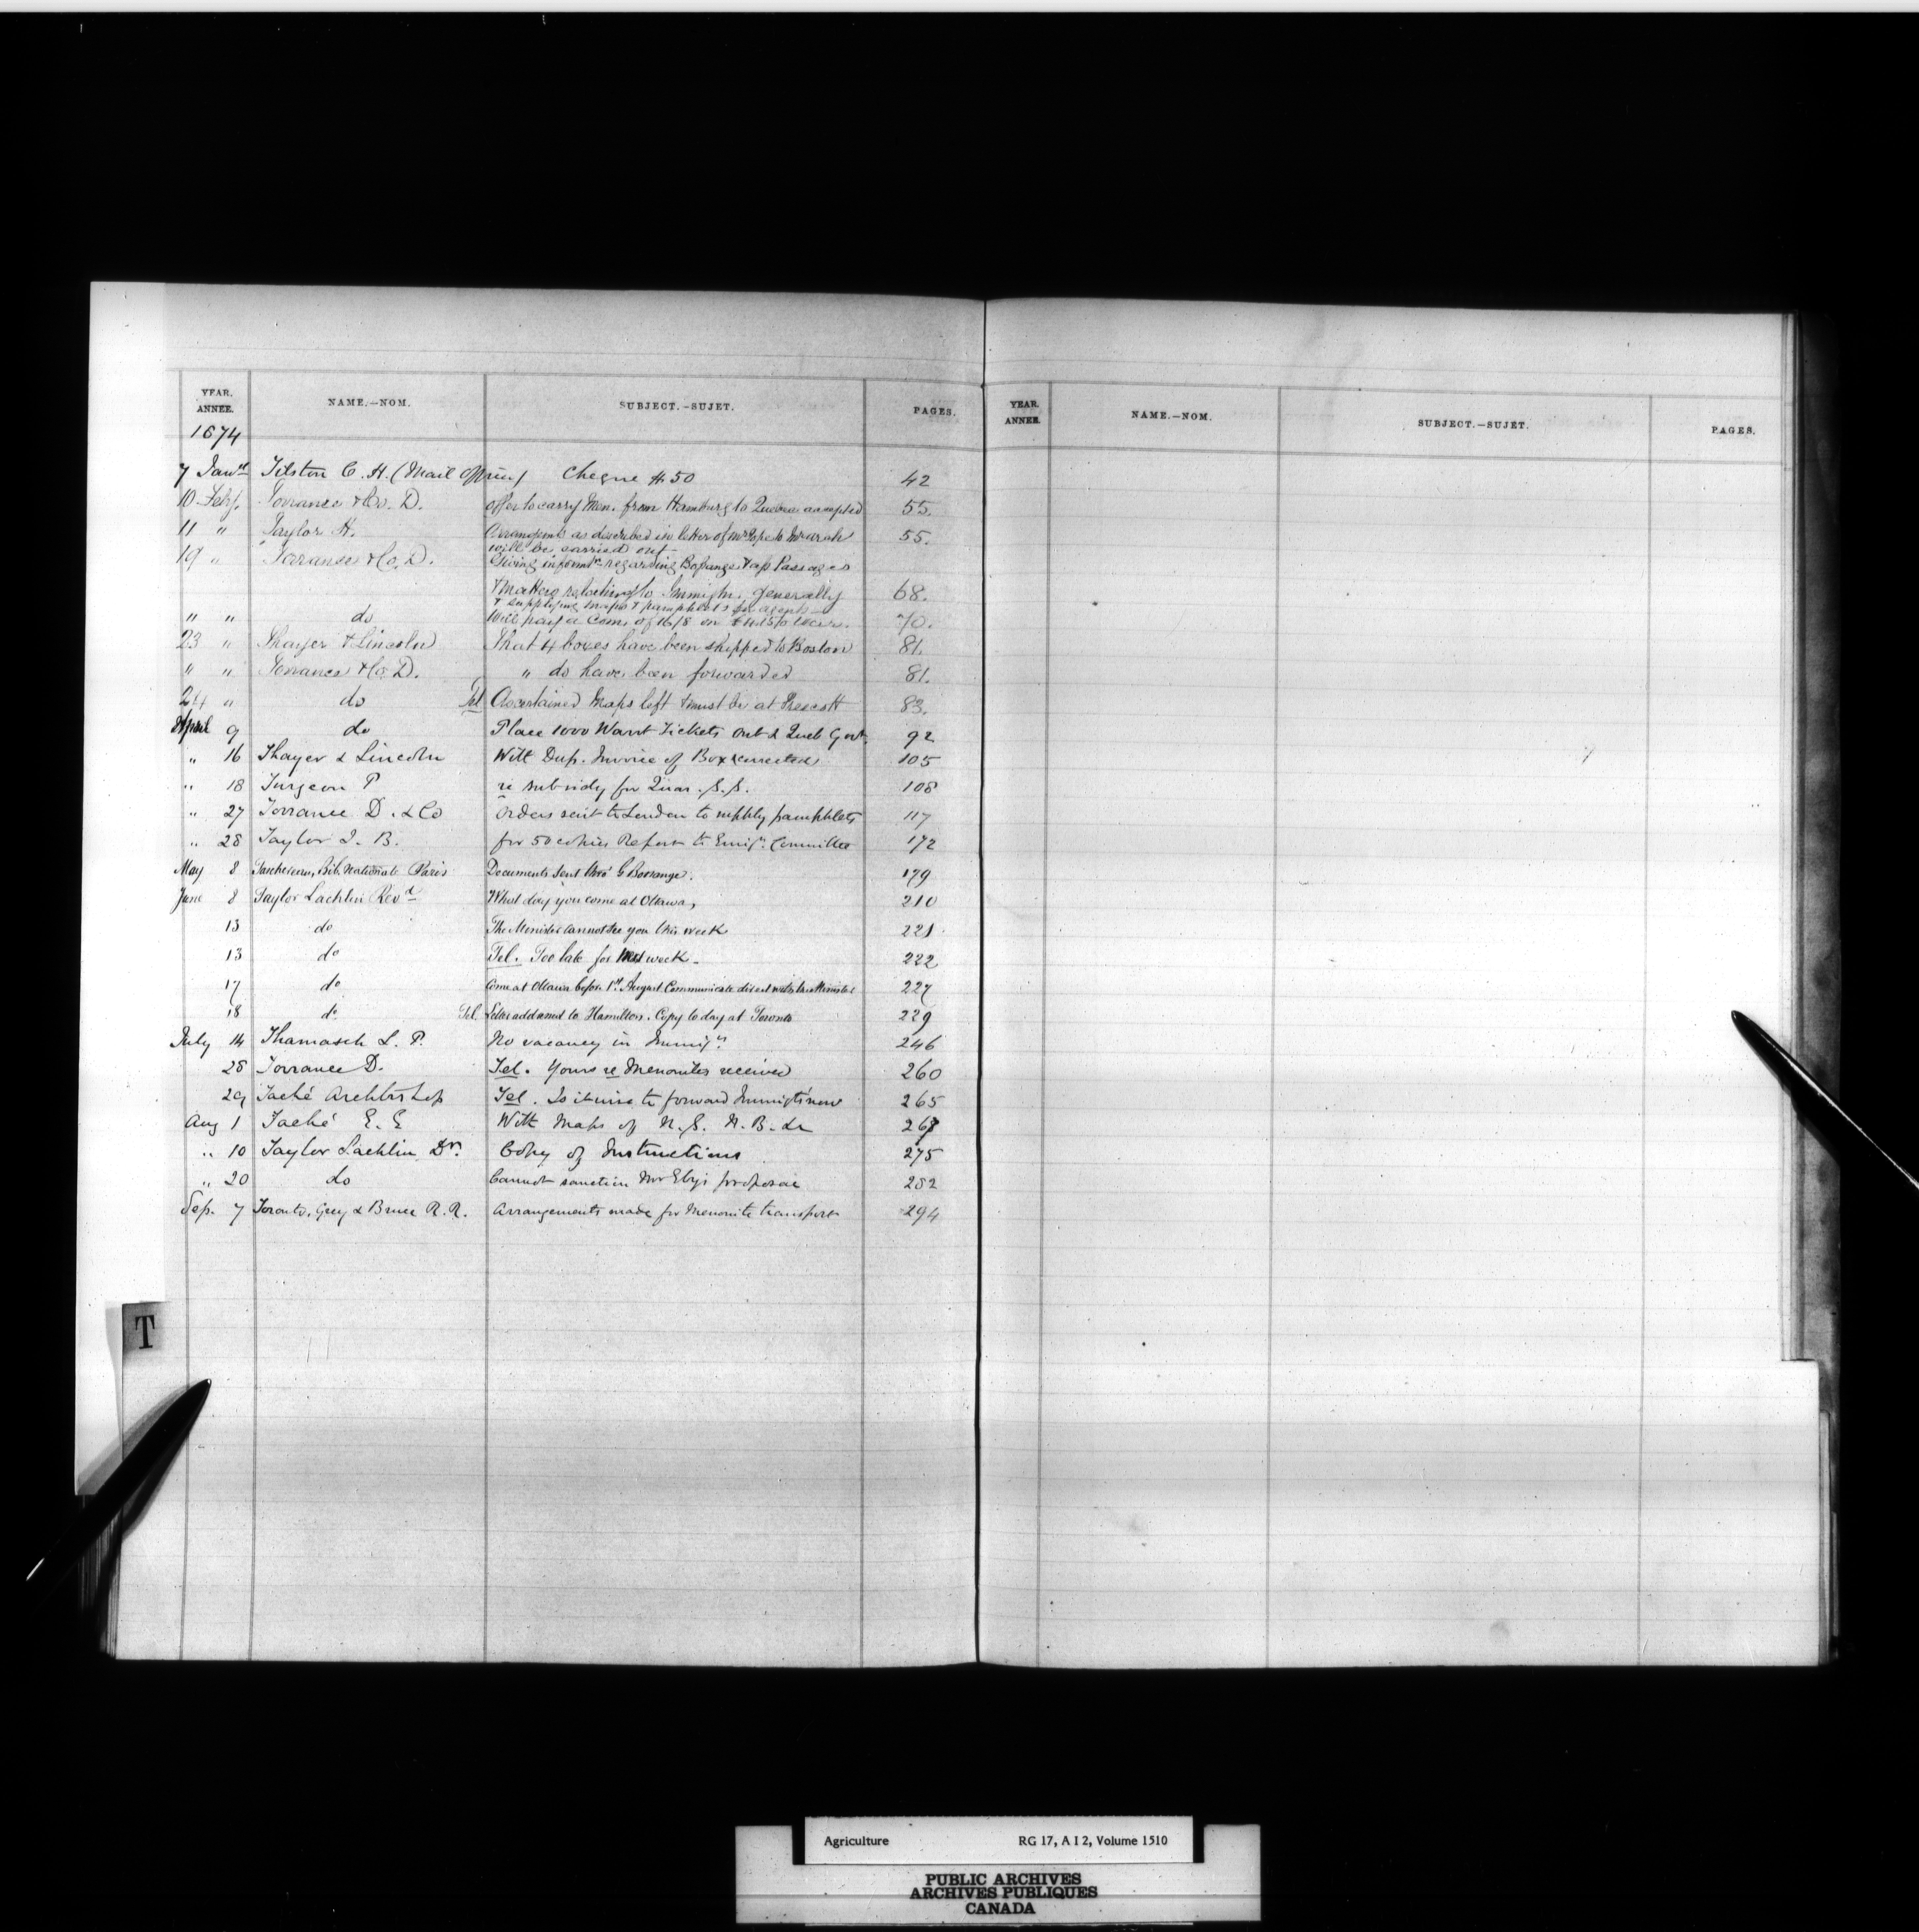 YEAR. ANNEE. NAME.—NOM. SUBJECT.—SUJET. PAGES. YEAR. ANNEE. NAME.—NOM. SUBJECT.—SUJET. PAGES.
1874
7 Tilston C. H. (Mail Cheque $50 42
10 Feby. Torrance & Co. D. offer to carry Men. from Hamburg to Quebec accepted 55.
11 " Taylor H. as described in letter of Mr Pope to 55.
will be carried out
19 " Torrance & Co. D. Giving informn. regarding & Passages
& Matters relating to Immign. generally 68.
& supplying maps & pamphlets for agents
" " do Will pay a Com. of 16/8 on 70.
23 " Thayer & Lincoln That 4 boxes have been shipped to Boston 81.
" " Torrance & Co. D. " do have been forwarded 81.
24 " do Tel Ascertained Maps left & must be at Prescott 83.
April 9 do Place 1000 Warrt Tickets Ont & Queb Govt. 92
" 16 Thayer & Lincoln With Dup. Invoice of Box corrected 105
" 18 Turgeon P re subsidy for Quar. S.S. 108
" 27 Torrance D. & Co Orders sent to London to supply pamphlets 117
" 28 Taylor J. B. for 50 copies Report to Emign. Committee 172
May 8 Bib. Nationale Paris Documents sent thro' G Bossange. 179
June 8 Taylor Lachlin Revd What day you come at Ottawa, 210
13 do The Minister cannot see you this week 221
13 do Tel. Too late for next week. 222
17 do Come at Ottawa before 1st August. Communicate direct with the Minister 227
18 do Tel. Letter addressed to Hamilton. Copy today at Toronto 229
July 14 Thamasch L. P. No vacancy in Immign. 246
28 Torrance D. Tel. Yours re Menonites received 260
29 Taché Archbishop Tel. Is it wise to forward Immigts now 265
Aug 1 Taché E. E With Maps of N.S. N.B. &c 267
" 10 Taylor Lachlin Dr. Copy of Instructions 275
" 20 do Cannot sanction Mr Eby's proposal 282
Sep. 7 Toronto, Grey & Bruce R.R. Arrangements made for Menonite transport 294
T
Agriculture RG 17, A I 2, Volume 1510
PUBLIC ARCHIVES
ARCHIVES PUBLIQUES
CANADA